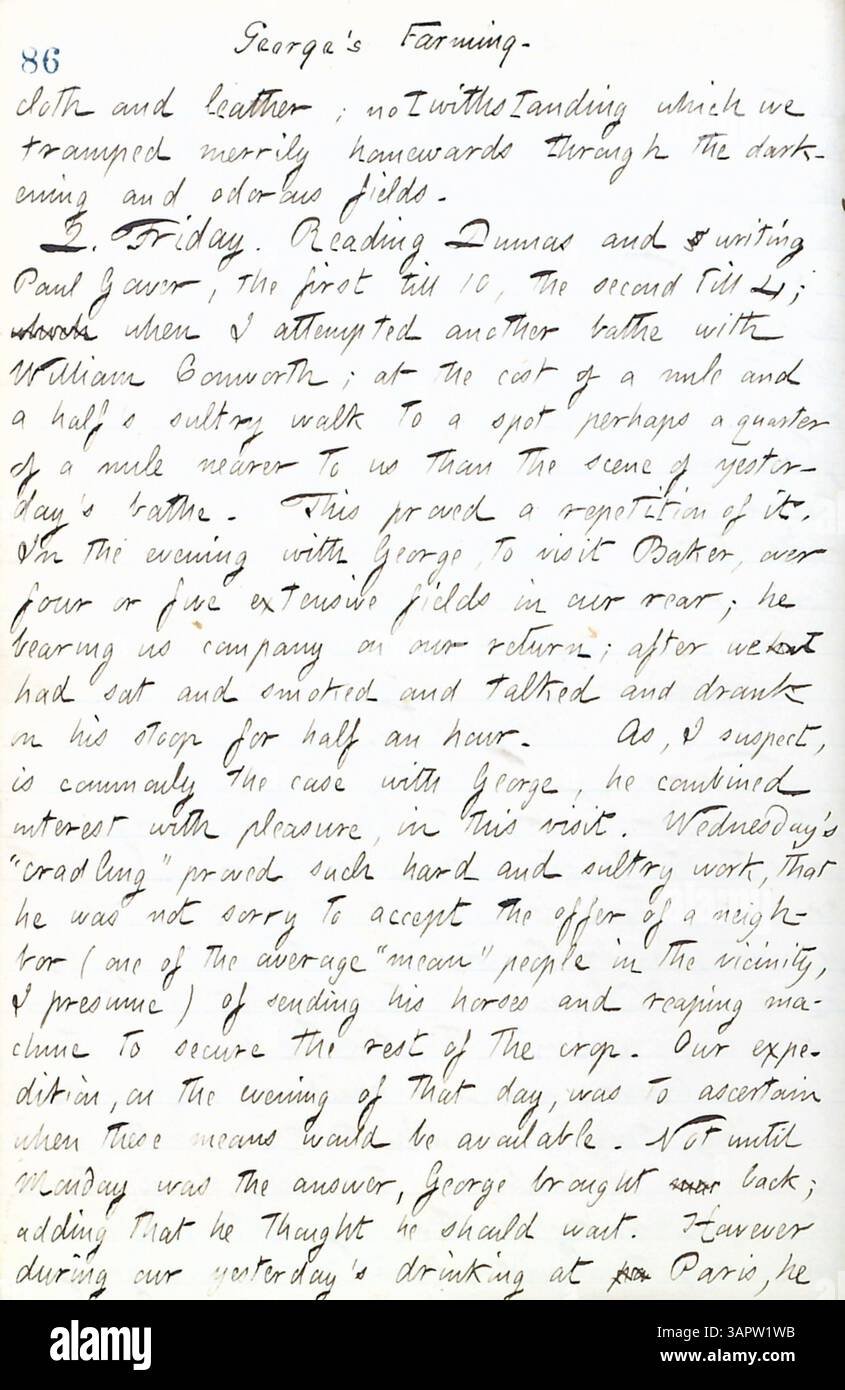 George's Farming.
86
cloth and leather ; notwithstanding which we
tramped merrily homewards through the dark-
ening and odorous fields.
2. Friday. Reading Dumas and writing
Paul Gower, the first till 10, the second till 4;
which when I attempted another bathe with
William Conworth; at the cost of a mile and
a half's sultry walk to a spot perhaps a quarter
of a mile nearer to us than the scene of yester-
day's bathe. This proved a repetition of it.
In the evening with George, to visit Baker, over
four or five extensive fields in our rear; he
bearing us company on our return; after we
had sat and smoked and talked and drank
on his stoop for half an hour. As, I suspect,
is commonly the case with George, he combined
interest with pleasure, in this visit. Wednesday's
"cradling" proved such hard and sultry work, that
he was not sorry to accept the offer of a neigh-
bor (one of the average "mean" people in the vicinity,
I presume) of sending his horses and reaping ma-
chine to secure the rest of the crop. Our expe-
dition, on the evening of that day, was to ascertain
when these means would be available. Not until
Monday was the answer, George brought back;
adding that he thought he should wait. However
during our yesterday's drinking at Paris, he
alamy
Image ID: 3APW1WB
www.alamy.com